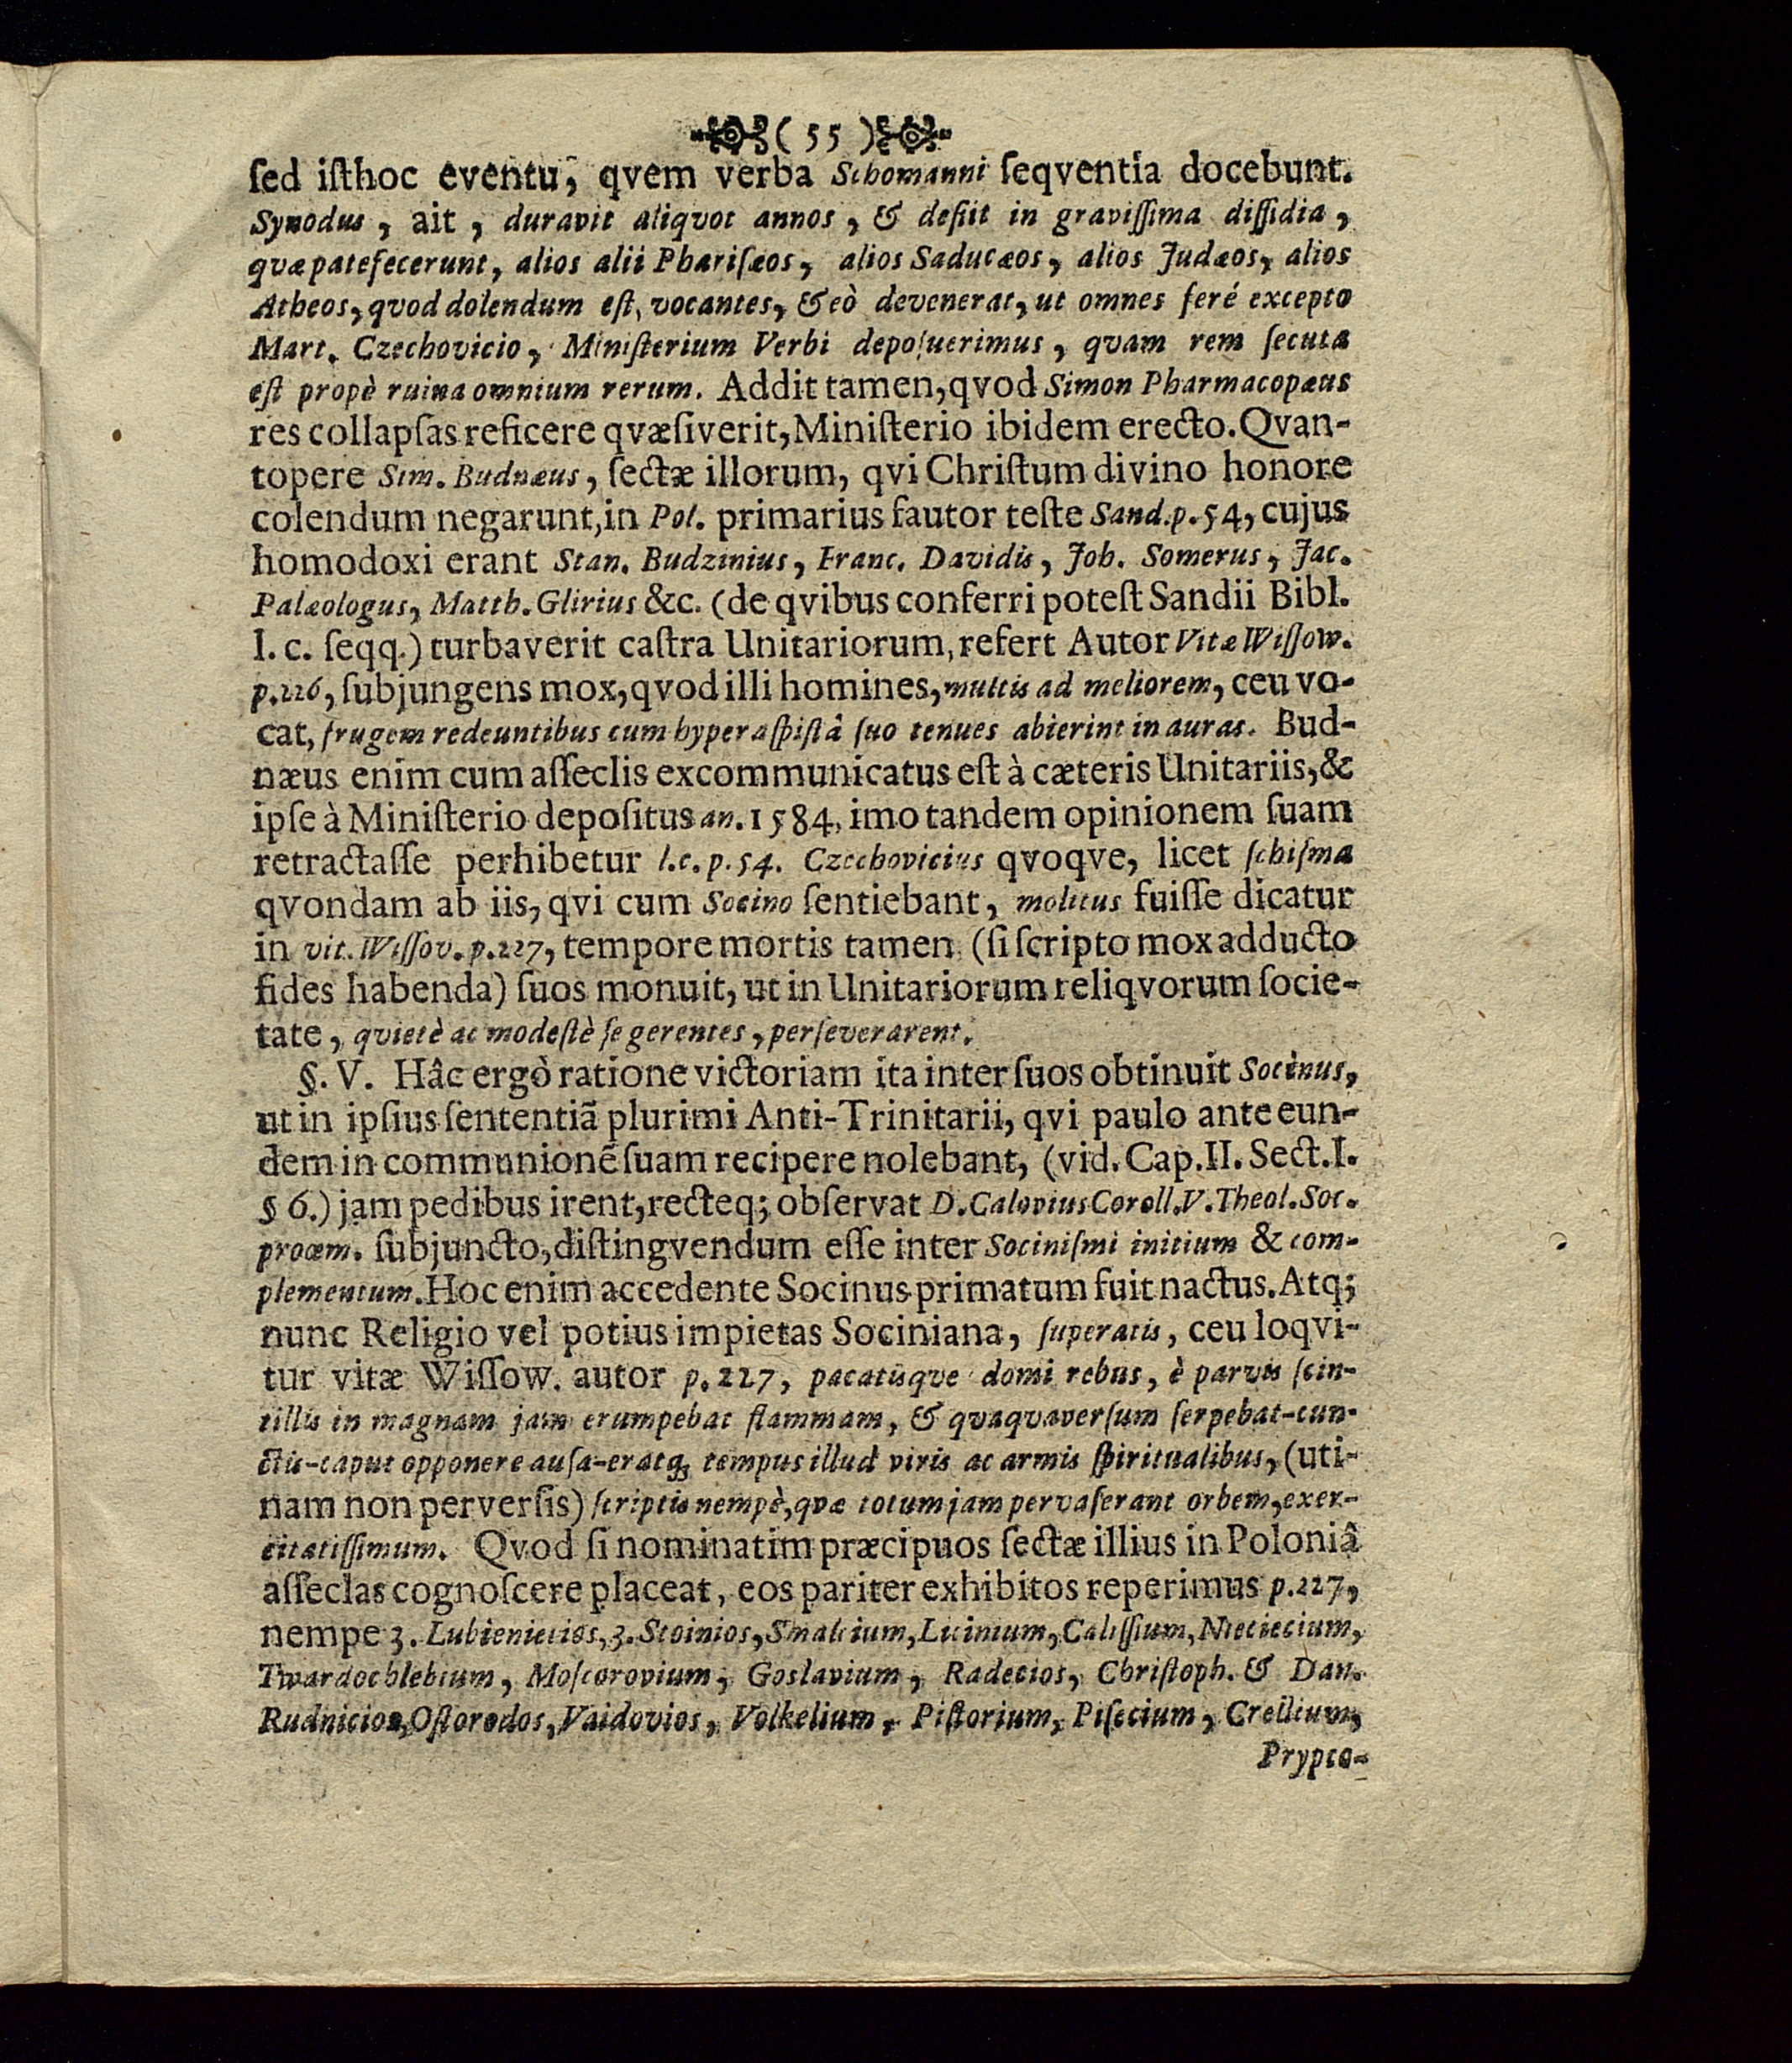 ( 55 )
ſed iſthoc eventu, qvem verba Schomanni ſeqventia docebunt.
Synodus, ait, duravit aliqvot annos, & deſiit in graviſſima diſſidia,
qvæ patefecerunt, alios alii Phariſæos, alios Saducæos, alios Judæos, alios
Atheos, qvod dolendum eſt, vocantes, & eò devenerat, ut omnes feré excepto
Mart. Czechovicio, Miniſterium Verbi depoſuerimus, qvam rem ſecuta
eſt propè ruina omnium rerum. Addit tamen, qvod Simon Pharmacopæus
res collapſas reficere qvæſiverit, Miniſterio ibidem erecto. Qvan-
topere Sim. Budnæus, ſectæ illorum, qvi Chriſtum divino honore
colendum negarunt, in Pol. primarius fautor teſte Sand. p. 54, cujus
homodoxi erant Stan. Budzinius, Franc. Davidis, Joh. Somerus, Jac.
Palæologus, Matth. Glirius &c. (de qvibus conferri poteſt Sandii Bibl.
l. c. ſeqq.) turbaverit caſtra Unitariorum, refert Autor Vitæ Wiſſow.
p. 226, ſubjungens mox, qvod illi homines, multis ad meliorem, ceu vo-
cat, frugem redeuntibus cum hyperaſpiſtâ ſuo tenues abierint in auras. Bud-
næus enim cum aſſeclis excommunicatus eſt à cæteris Unitariis, &
ipſe à Miniſterio depoſitus an. 1584, imo tandem opinionem ſuam
retractaſſe perhibetur l. c. p. 54. Czechovicius qvoqve, licet ſchiſma
qvondam ab iis, qvi cum Socino ſentiebant, molitus fuiſſe dicatur
in vit. Wiſſov. p. 227, tempore mortis tamen (ſi ſcripto mox adducto
fides habenda) ſuos monuit, ut in Unitariorum reliqvorum ſocie-
tate, qvietè ac modeſtè ſe gerentes, perſeverarent.
§. V. Hâc ergò ratione victoriam ita inter ſuos obtinuit Socinus,
ut in ipſius ſententiã plurimi Anti-Trinitarii, qvi paulo ante eun-
dem in communionẽ ſuam recipere nolebant, (vid. Cap. II. Sect. I.
§ 6.) jam pedibus irent, recteq; obſervat D. Calovius Coroll. V. Theol. Soc.
proœm. ſubjuncto, diſtingvendum eſſe inter Sociniſmi initium & com-
plementum. Hoc enim accedente Socinus primatum fuit nactus. Atq;
nunc Religio vel potius impietas Sociniana, ſuperatis, ceu loqvi-
tur vitæ Wiſſow. autor p. 227, pacatisqve domi rebus, è parvis ſcin-
tillis in magnam jam erumpebat flammam, & qvaqvaverſum ſerpebat-cun-
ctis-caput opponere auſa-eratq; tempus illud viris ac armis ſpiritualibus, (uti-
nam non perverſis) ſcriptis nempè, qvæ totum jam pervaſerant orbem, exer-
citatiſſimum. Qvod ſi nominatim præcipuos ſectæ illius in Poloniâ
aſſeclas cognoſcere placeat, eos pariter exhibitos reperimus p. 227,
nempe 3. Lubieniecios, 3. Stoinios, Smalcium, Licinium, Caliſſium, Nieciecium,
Twardochlebium, Moſcorovium, Goslavium, Radecios, Chriſtoph. & Dan.
Rudnicios, Oſtorodos, Vaidovios, Volkelium, Piſtorium, Piſecium, Crellium,
Prypco-